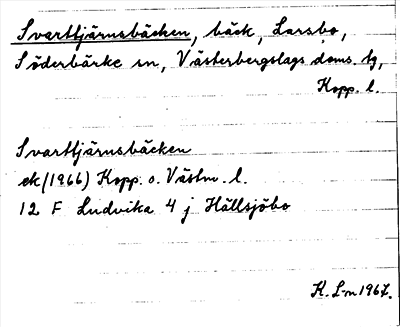 Svarttjärnsbäcken, bäck, Larsbo,
Söderbärke sn, Västerbergslags doms. tg,
Kopp. l.
Svarttjärnsbäcken
ek (1966) Kopp. o. Västm. l.
12 F Ludvika 4 j Hällsjöbo
K. L-m 1967.